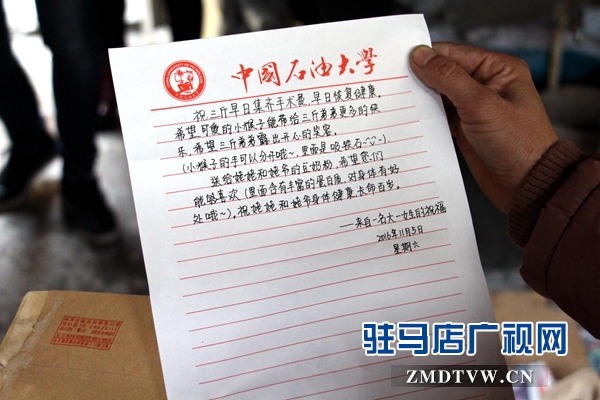 中国石油大學
祝三斤早日集齐手术费,早日恢复健康。
希望可爱的小猴子能带给三斤弟弟更多的快
乐,希望三斤弟弟露出开心的笑容。
(小猴子的手可以分开哦~,里面是吸铁石^_^~)
送给姥姥和姥爷的豆奶粉,希望您们
能够喜欢(里面含有丰富的蛋白质,对身体有好
处哦~)。祝姥姥和姥爷身体健康长命百岁。
——来自一名大一女生的祝福
2016年11月5日
星期六
驻马店广视网
ZMDTVW.CN